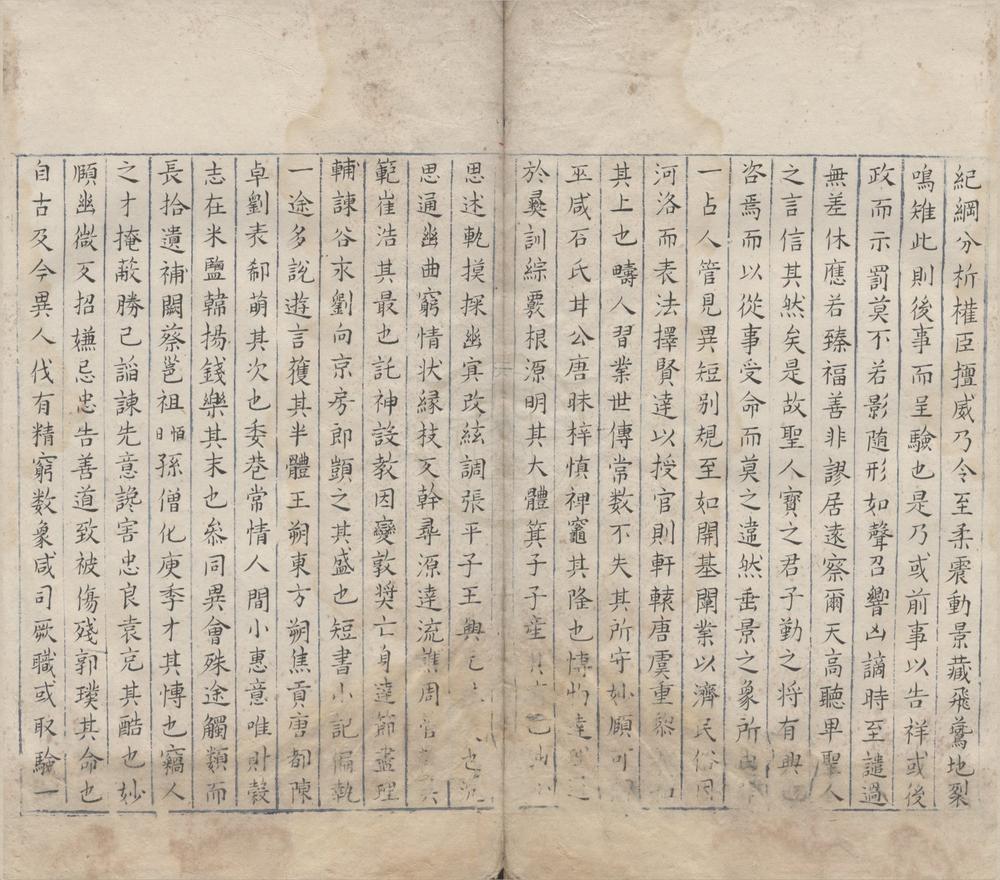 紀綱分析權臣擅威乃令至柔震動景藏飛鶩地裂
鳴雉此則後事而呈驗也是乃或前事以告祥或後
政而示罰莫不若影隨形如聲召響凶謫時至譴過
無差休應若臻福善非謬居遠察爾天高聽卑聖人
之言信其然矣是故聖人寶之君子勤之将有興
咨焉而以從事受命而莫之違然垂景之象所
一占人管見異短别規至如開基闡業以濟民俗因
河洛而表法擇賢達以授官則軒轅唐虞重黎
其上也疇人習業世傳常数不失其所守妙願可
巫咸石氏甘公唐昧梓慎禆竈其隆也慱物達
於彝訓綜覈根源明其大體箕子子產其
思述軌摸探幽㝠改絃調張平子王興也
思通幽曲窮情状縁枝反幹㝷源達流譙周管
範崔浩其最也託神設教因變敦奬亡身達節盡理
輔諫谷永劉向京房郎顗之其盛也短書小記偏執
一途多說遊言獲其半體王朔東方朔焦貢唐都陳
卓劉表郗萌其次也委巷常情人間小惠意唯財穀
志在米鹽韓揚錢樂其末也叅同異會殊途觸類而
長拾遺補闕蔡邕祖暅孫僧化庾季才其慱也竊人
之才掩蔽勝己謟諫先意讒害忠良袁充其酷也妙
願幽㣲反招嫌忌忠告善道致被傷殘郭璞其命也
自古及今異人代有精窮数象咸司厥職或取驗一